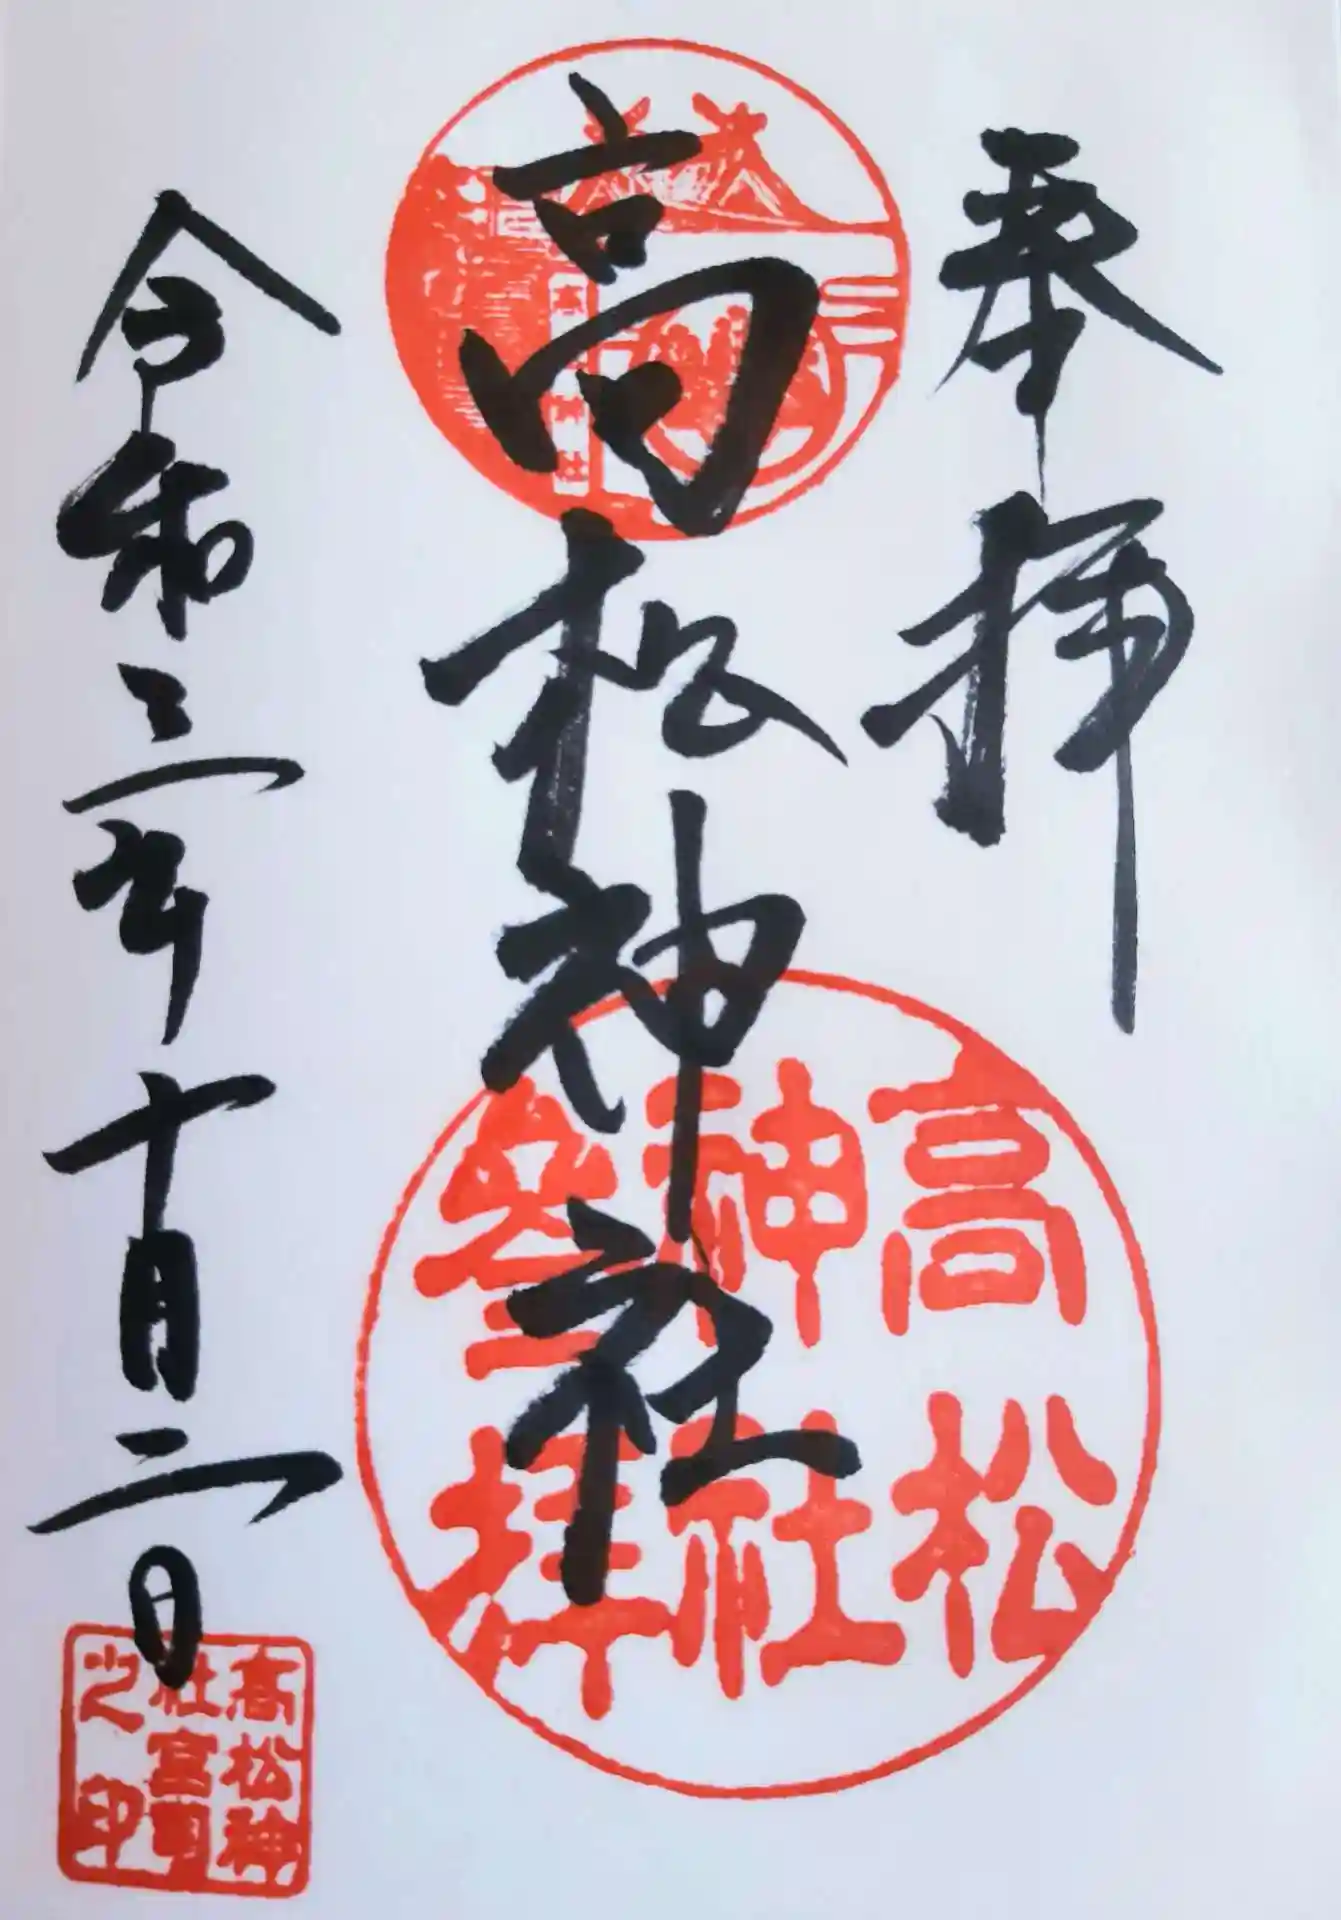 奉拝
高松神社
高松神社
高松
神社
参拝
令和三年十月二日
高松神
社宮司
之印